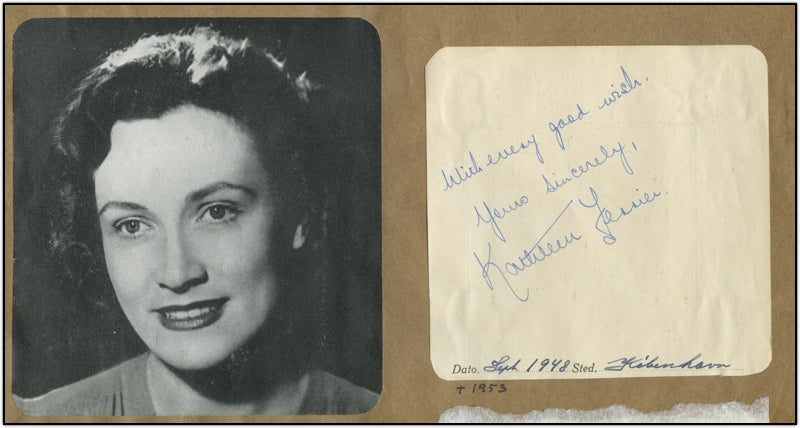 With every good wish.
Yours Sincerely,
Kathleen Ferrier.
Dato. Sept 1948 Sted. København
+ 1953